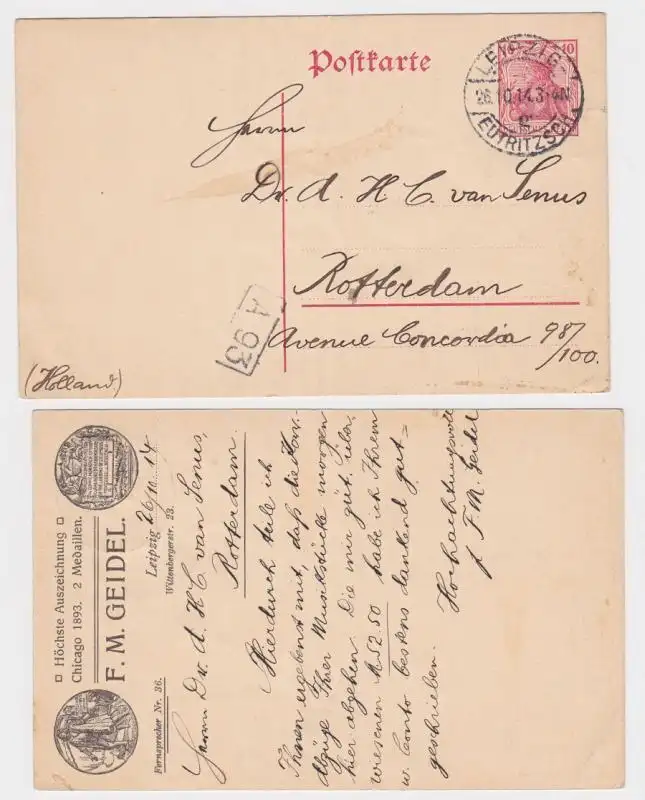 Postkarte
10
LEIPZIG-
26.10.14.3-4N
EUTRITZSCH
Herrn
Dr. A. H. C. van Senus
Rotterdam
Avenue Concordia 98/100.
(Holland)
A 93
Höchste Auszeichnung
Chicago 1893. 2 Medaillen.
F. M. GEIDEL.
Fernsprecher Nr. 36.
Leipzig 26/10. 14
Wittenbergerstr. 23.
Herrn Dr. A. H C van Senus,
Rotterdam.
Hierdurch teile ich
Ihnen ergebenst mit, daß die Kor-
Abzüge Ihrer Musikstücke morgen
hier abgehen. Die mir güt.
wiesenen M 52.50 habe ich Ihrem
w. Conto bestens dankend gut-
geschrieben.
Hochachtungsvoll
F. M. Geidel